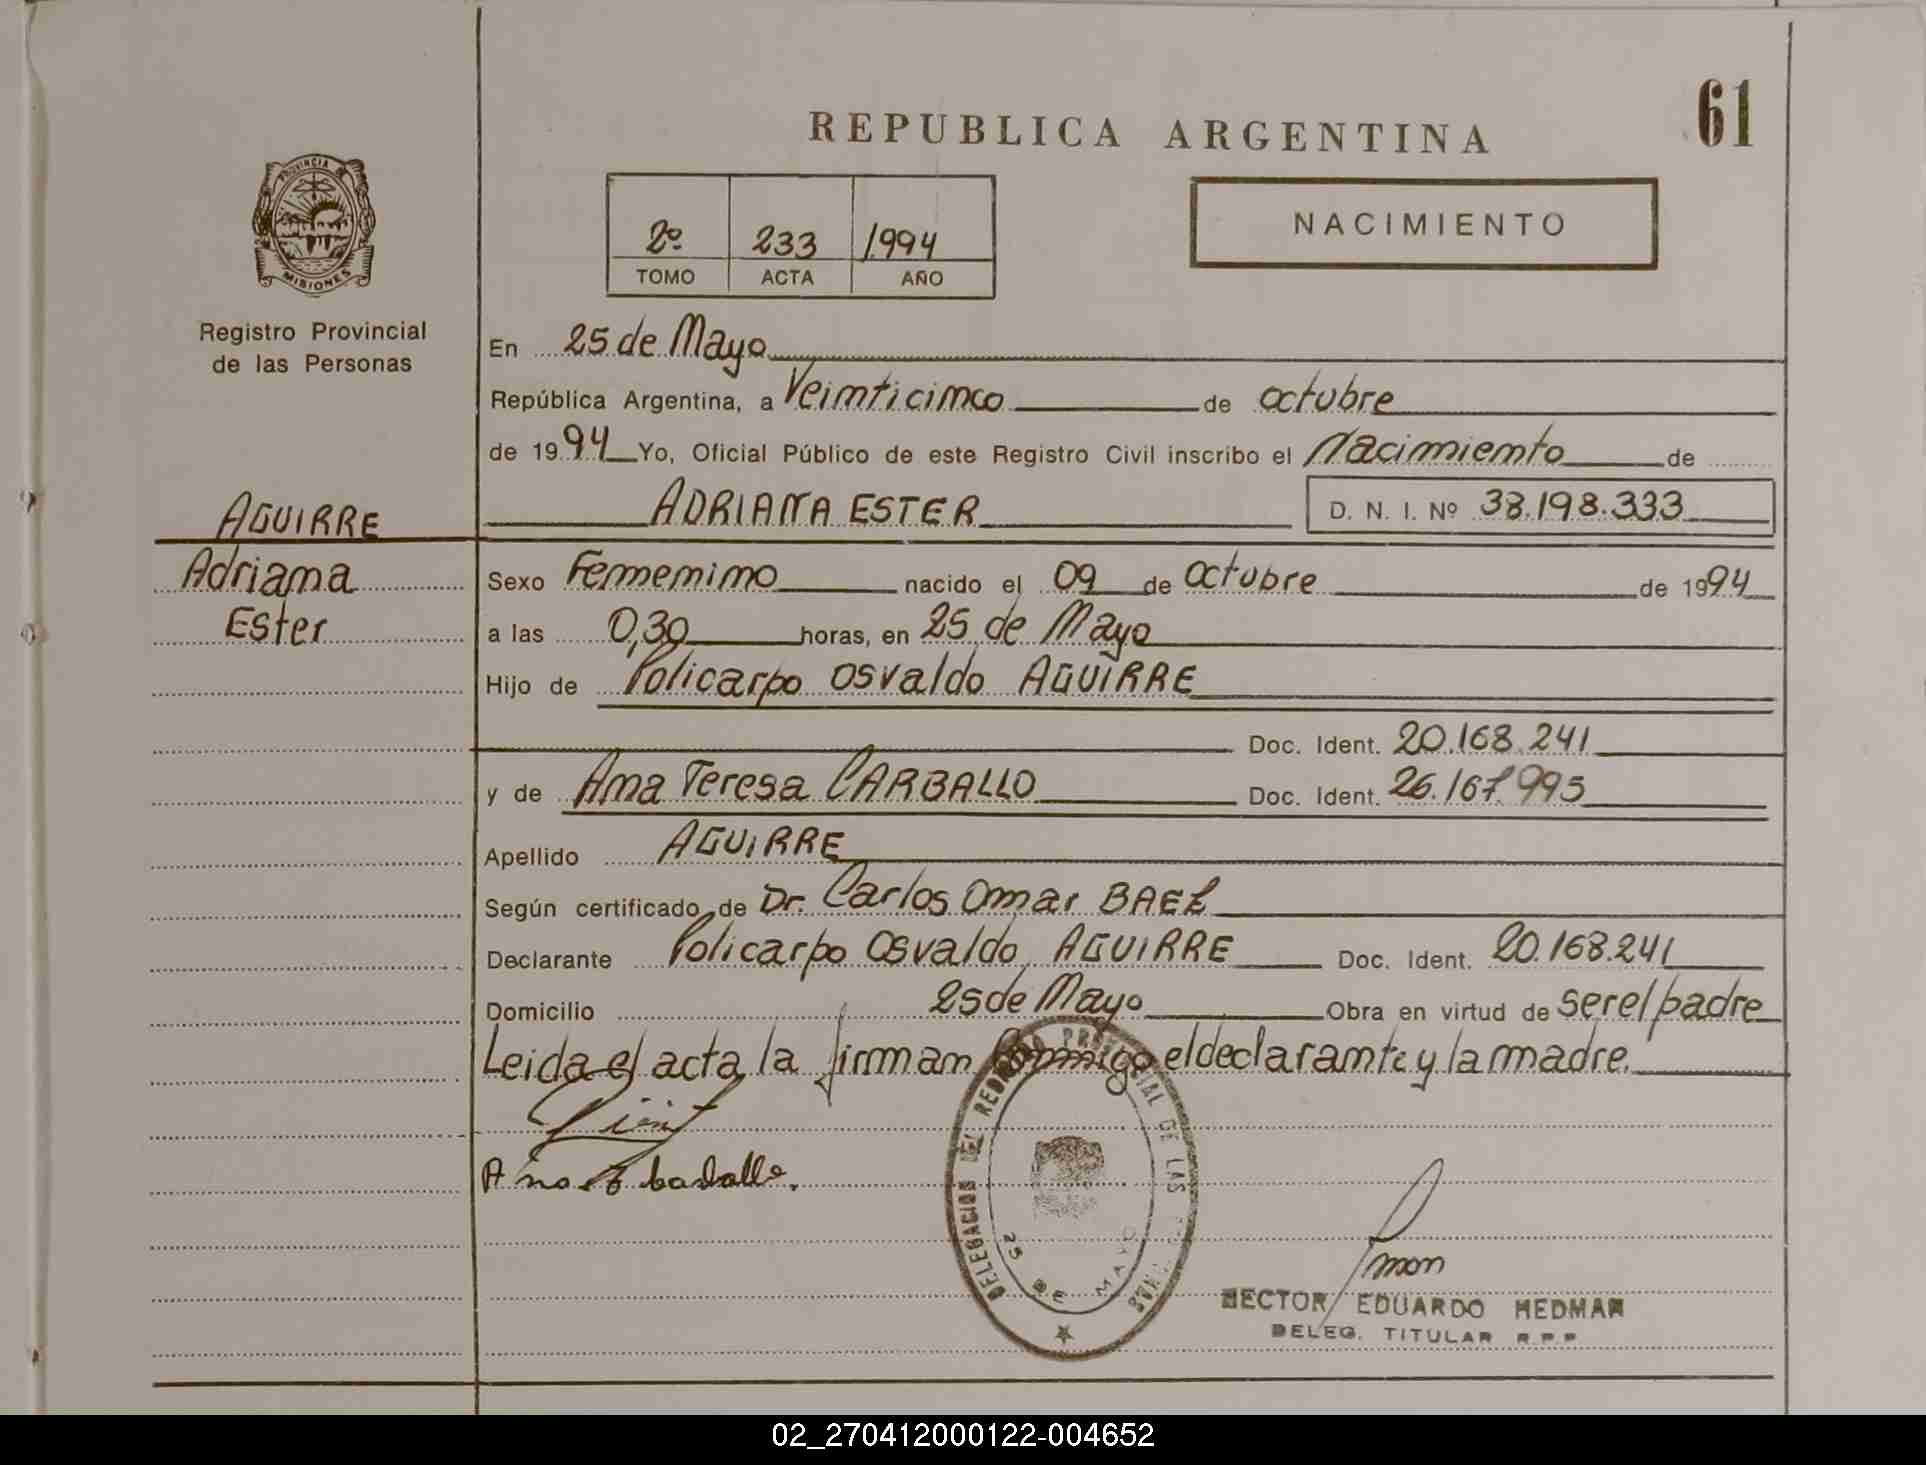 61
REPUBLICA ARGENTINA
PROVINCIA DE
MISIONES
Registro Provincial
de las Personas
2º 233 1994
TOMO ACTA AÑO
NACIMIENTO
En 25 de Mayo
República Argentina, a Veinticinco de octubre
de 1994 Yo, Oficial Público de este Registro Civil inscribo el Nacimiento de
AGUIRRE
Adriana
Ester
ADRIANA ESTER D. N. I. Nº 38.198.333
Sexo Femenino nacido el 09 de octubre de 1994
a las 0,30 horas, en 25 de Mayo
Hijo de Policarpo Osvaldo AGUIRRE
Doc. Ident. 20.168.241
y de Ana Teresa CARBALLO Doc. Ident. 26.167.995
Apellido AGUIRRE
Según certificado de Dr. Carlos Omar BAEZ
Declarante Policarpo Osvaldo AGUIRRE Doc. Ident. 20.168.241
Domicilio 25 de Mayo Obra en virtud de ser el padre
Leida el acta la firman conmigo el declarante y la madre.
Ana T. Carballo.
DELEGACION DEL REGISTRO PROVINCIAL DE LAS PERSONAS
25 DE MAYO
HECTOR EDUARDO HEDMAN
DELEG. TITULAR R.P.P.
02_270412000122-004652